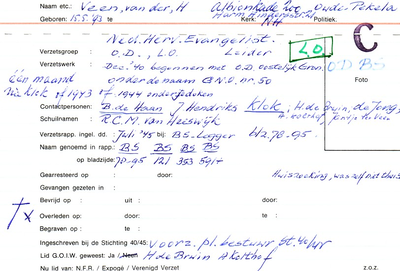 Naam etc.: Veen, van der, H Albionkade 200 Oude Pekela
Geboren: 15.5.'43 te Kerk: NH Politiek.
C
Ned. Herv. Evangelist.
Verzetsgroep : O.D., L.O. Leider
LO
Verzetswerk : Dec. '40 begonnen met O.D. Oostelijk Gron. O.D BS
één maand onder de naam C.N.O. nr. 50
Foto
via Klok of 1943 of 1944 ondergedoken
Contactpersonen: B. de Haan / Hendriks Klok, H. de Bruin, de Jong,
Schuilnamen : R.C.M. van Heeswijk
Verzetsrapp. ingel. dd.: Juli '45 bij: BS-Lagger 42.78-95.
Naam genoemd in rapp.: BS BS BS BS
op bladzijde: 78-95 121 353 591
Gearresteerd op : te : door: Huiszoeking, was
Gevangen gezeten in :
Bevrijd op : uit : door:
† x Overleden op : door: te :
Begraven op : te :
Ingeschreven bij de Stichting 40/45: voorz. pl. bestuur St. 40/45
Lid G.O.I.W. geweest: Ja / Neen H. de Bruin A Kolthof
Nu lid van: N.F.R. / Expogé / Verenigd Verzet z.o.z.